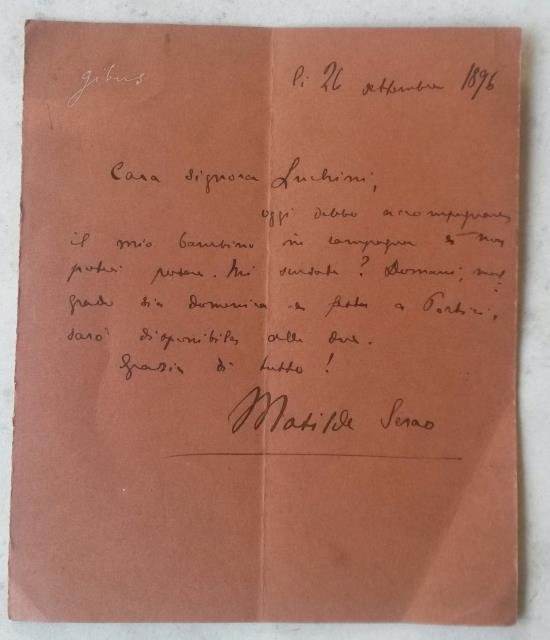 gibus
li 26 settembre 1896
Cara Signora Luchini,
oggi debbo accompagnare
il mio bambino in campagna e non
potrei posare. Mi scusate? Domani, mal
grado sia domenica e festa a Portici,
sarò disponibile alle due.
Grazie di tutto!
Matilde Serao